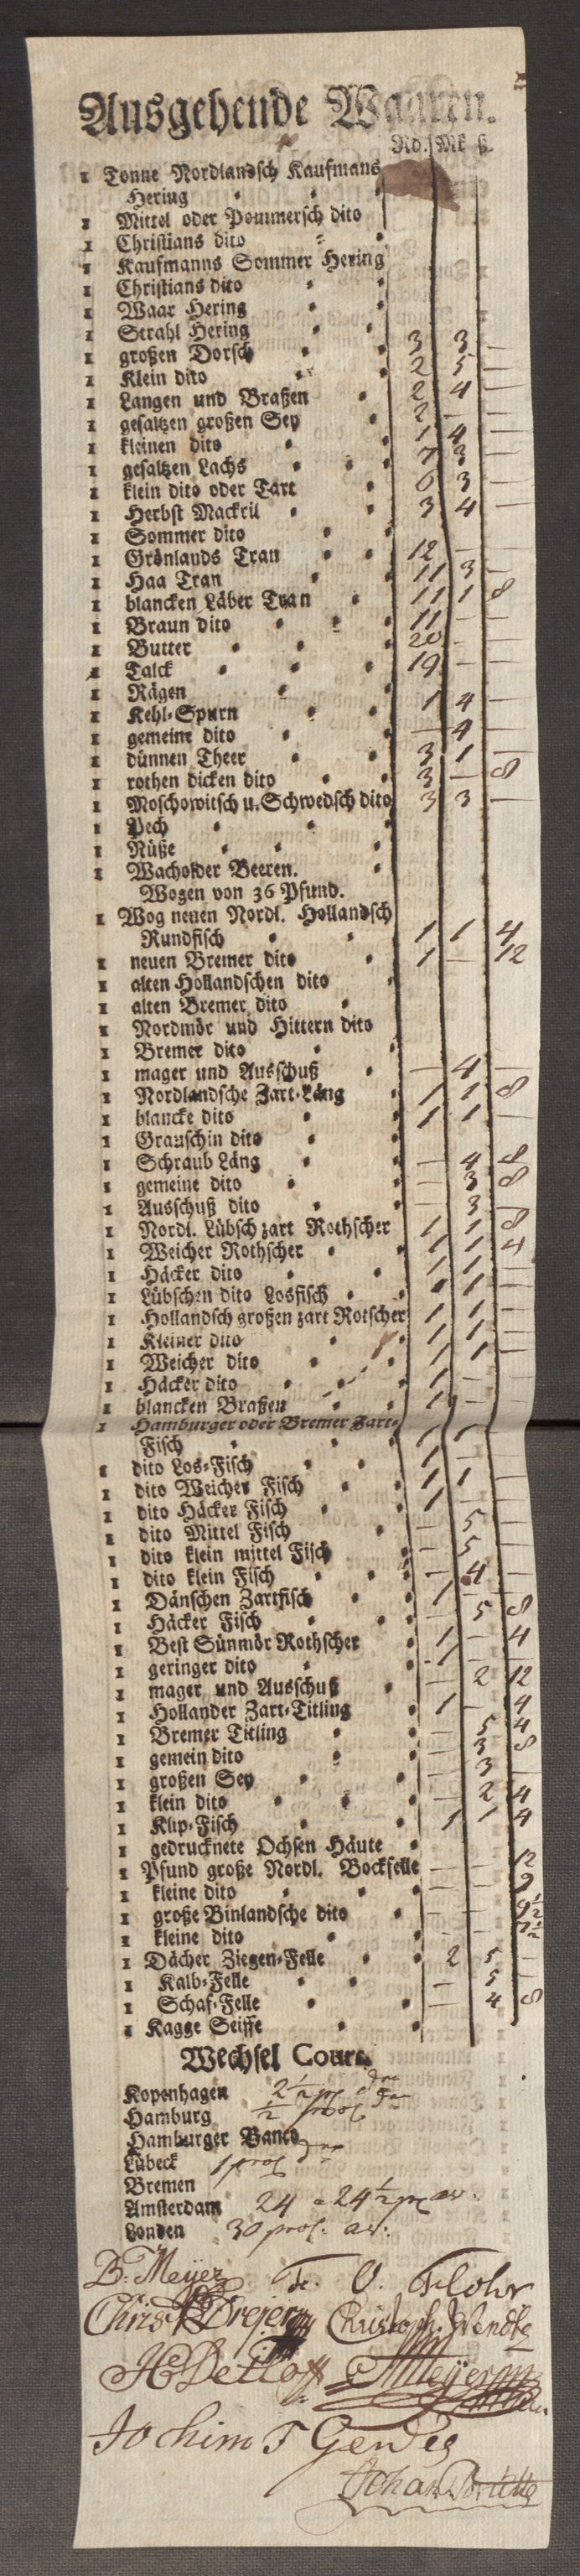 Ausgehende Waaren.
Rd. Mk ß.
1 Tonne Nordlandsch Kaufmans
Hering
1 Mittel oder Pommersch dito
1 Christians dito
1 Kaufmanns Sommer Hering
1 Christians dito
1 Waar Hering
1 Strahl Hering
1 großen Dorsch 3 3 —
1 Klein dito 2 5 —
1 Langen und Braßen 2 4 —
1 gesaltzen großen Sey 2 — —
1 kleinen dito 1 4 —
1 gesaltzen Lachs 7 3 —
1 klein dito oder Tart 6 3 —
1 Herbst Mackril 3 4 —
1 Sommer dito
1 Grönlands Tran 12 — —
1 Haa Tran 11 3 —
1 blancken Läber Tran 11 1 8
1 Braun dito 11 — —
1 Butter 20 — —
1 Talck 19 — —
1 Rägen
1 Kehl-Spurn 1 4 —
1 gemeine dito — 4 —
1 dünnen Theer 3 1 —
1 rothen dicken dito 3 — 8
1 Moschowitsch u. Schwedsch dito 3 3 —
1 Pech
1 Nüße
1 Wacholder Beeren.
Wogen von 36 Pfund.
1 Wog neuen Nordl. Hollandsch
Rundfisch 1 1 4
1 neuen Bremer dito 1 — 12
1 alten Hollandschen dito
1 alten Bremer dito
1 Nordmör und Hittern dito
1 Bremer dito
1 mager und Ausschuß — 4 —
1 Nordlandsche Zart-Läng 1 1 8
1 blancke dito 1 1 —
1 Grauschin dito
1 Schraub Läng — 4 8
1 gemeine dito — 3 8
1 Ausschuß dito — 3 —
1 Nordl. Lübsch zart Rothscher 1 1 8
1 Weicher Rothscher 1 1 4
1 Häcker dito 1 1 —
1 Lübschen dito Losfisch 1 —
1 Hollandsch großen zart Rotscher 1 1 —
1 Kleiner dito 1 1 —
1 Weicher dito 1 1 —
1 Häcker dito 1 — —
1 blancken Braßen 1 — —
1 Hamburger oder Bremer Zart-
Fisch 1 1 —
1 dito Los-Fisch 1 — —
1 dito Weicher Fisch 1 1 —
1 dito Häcker Fisch 1 — —
1 dito Mittel Fisch — 5 —
1 dito klein mittel Fisch — 5 —
1 dito klein Fisch — 4 —
1 Dänschen Zartfisch 1 — —
1 Häcker Fisch — 5 8
1 Best Sünmör Rothscher 1 — 4
1 geringer dito 1 — —
1 mager und Ausschuß — 2 12
1 Hollander Zart-Titling 1 — 4
1 Bremer Titling — 5 4
1 gemein dito — 3 8
1 großen Sey — 3 —
1 klein dito — 2 4
1 Klip-Fisch 1 1 4
1 gedrucknete Ochsen Häute
1 Pfund große Nordl. Bockfelle — — 12
1 kleine dito — — 9
1 große Binlandsche dito — — 9½
1 kleine dito — — 7½
1 Dächer Ziegen-Felle 2 5 —
1 Kalb-Felle — 5 —
1 Schaf-Felle — 4 8
1 Kagge Seiffe
Wechsel Cours.
Kopenhagen 2½
Hamburg ½
Hamburger Banco
Lübeck 1
Bremen
Amsterdam 24 a 24½
Londen 30
B: Meyer
Flohr
Dreyer Christoph Wendte
HDetloff Meyer
Jochim Gerdes
Johan